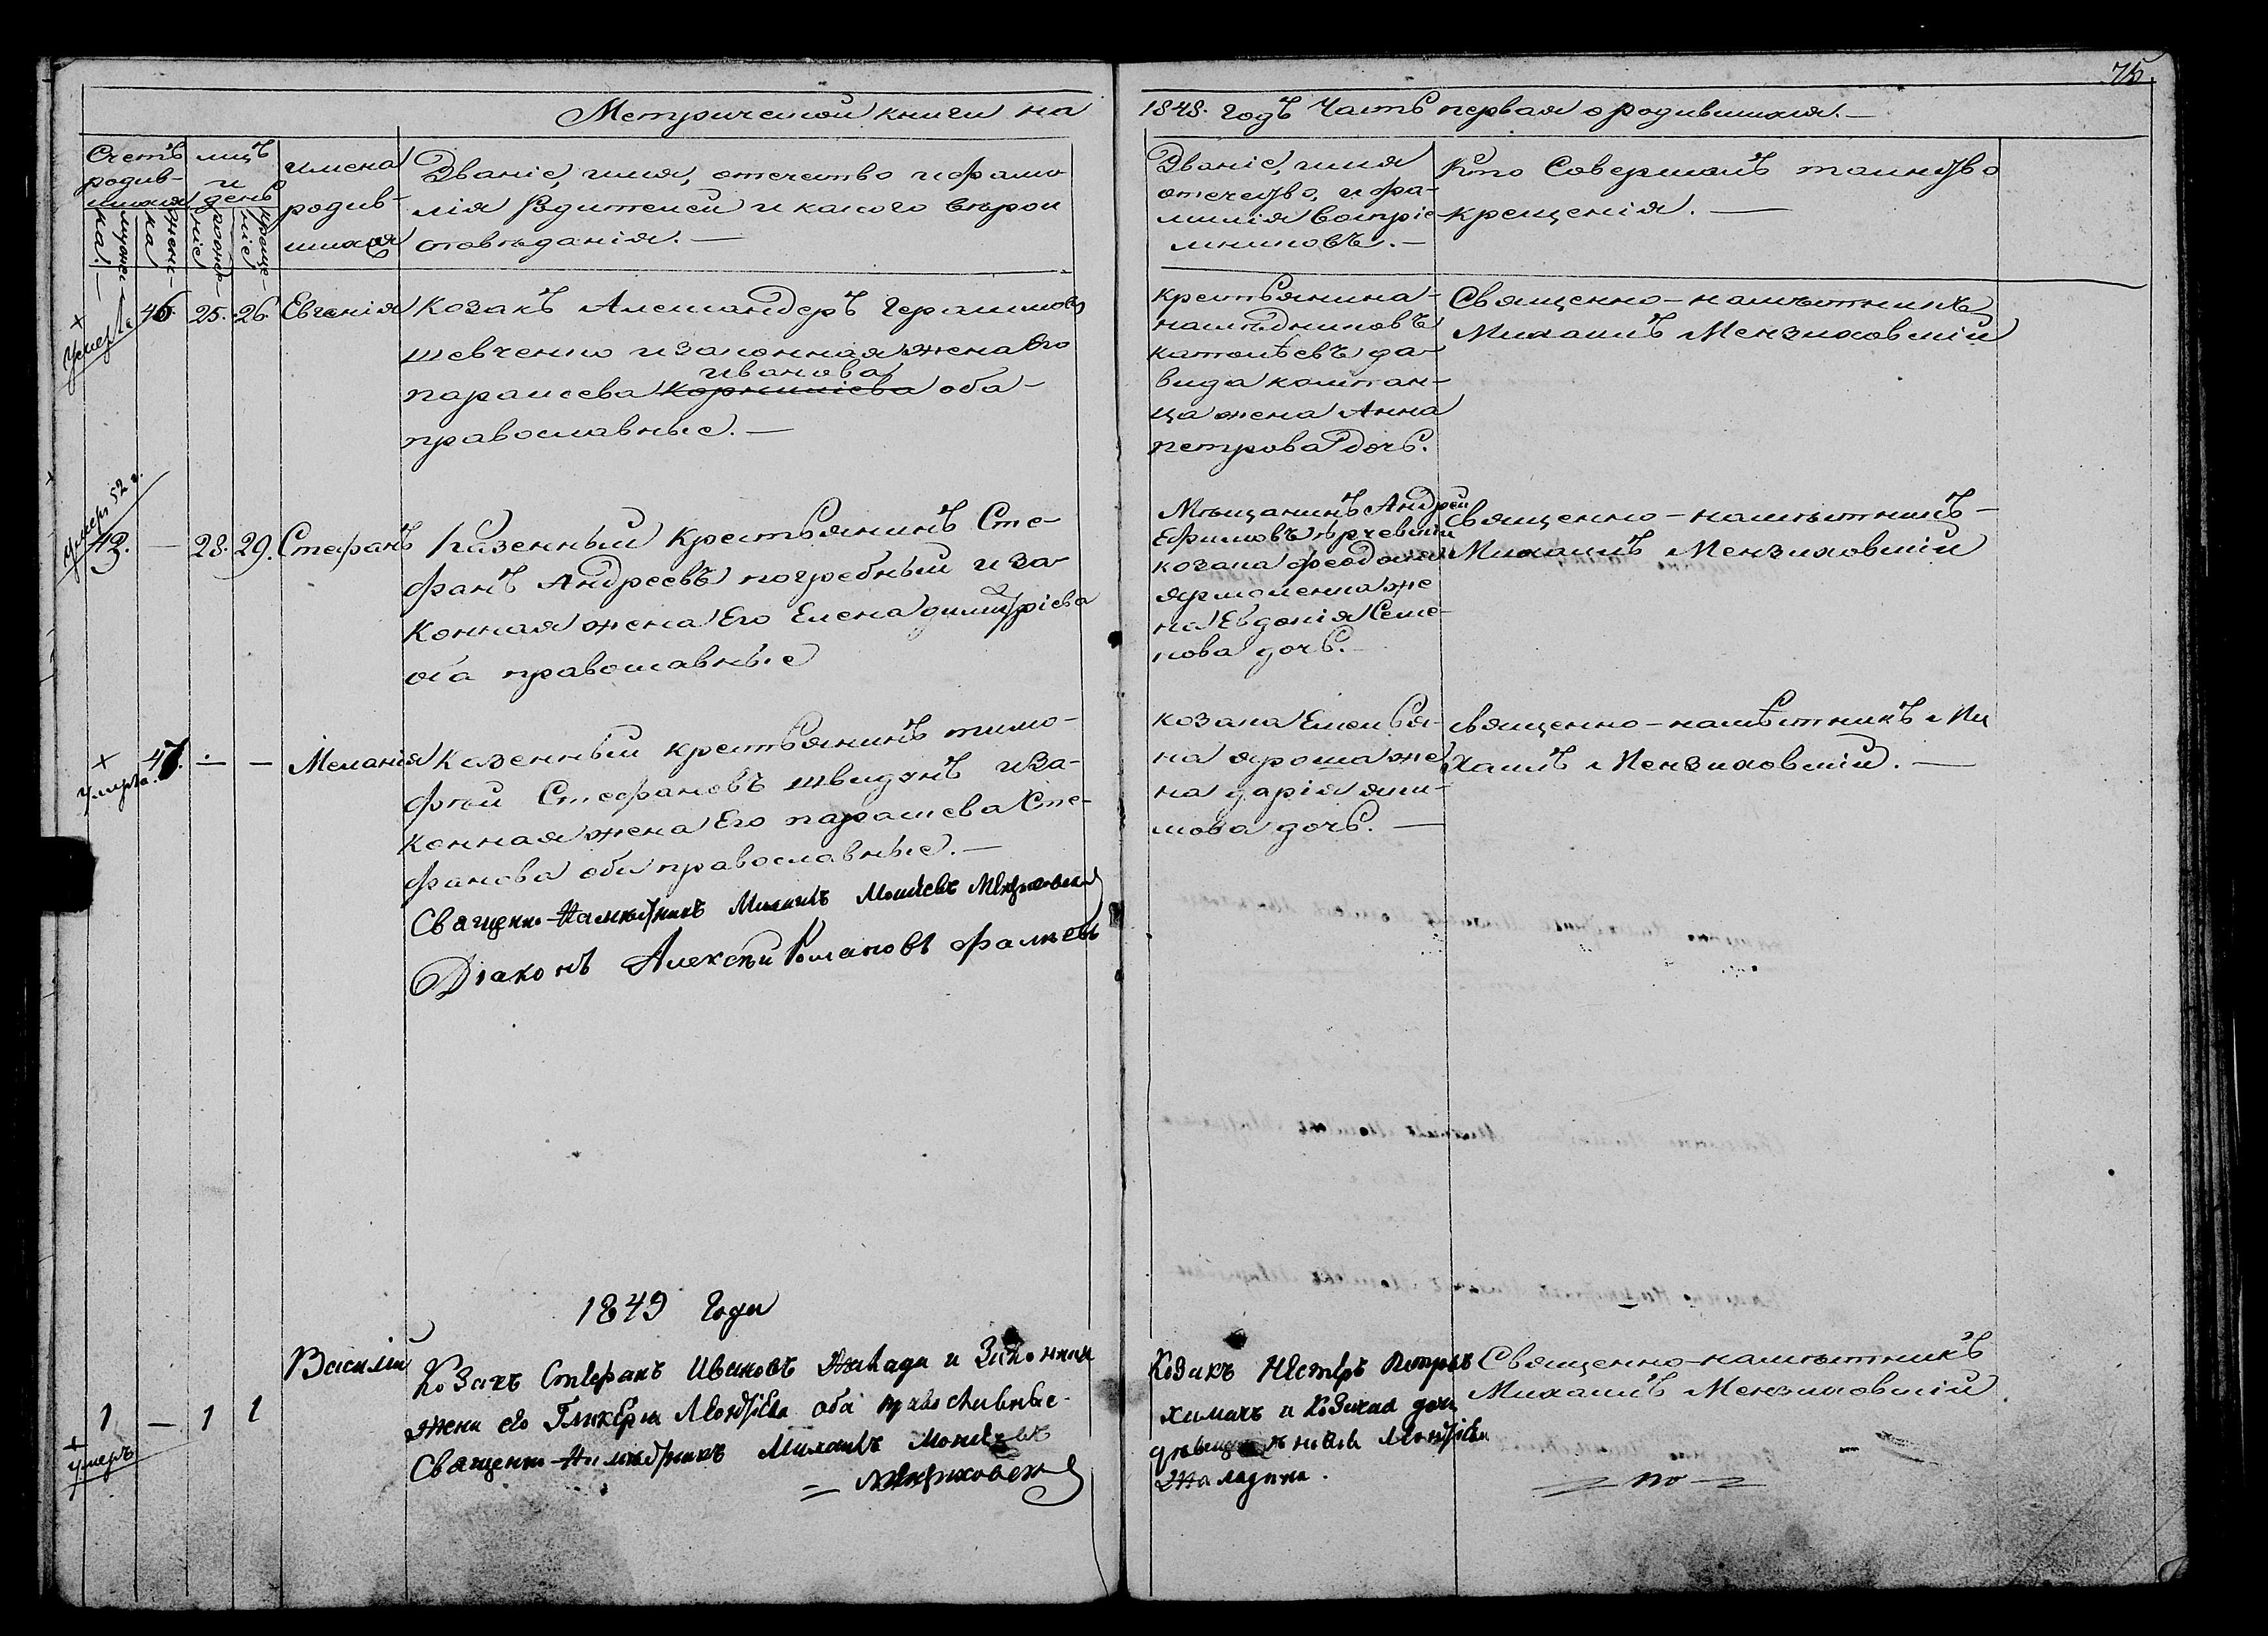 75.
Метрической книги на 1848. годъ Часть первая о родившихся.—
Счетъ родив-
шихся
мужес-
ка.
женс-
ка
мцъ
и
день
рожде-
ніе
креще-
ніе
имена
родив-
шихся
Званіе, имя, отечество и фами-
лія Родителей и какого вѣрои
споведанія.—
Званіе, имя
отечество, и фа-
милія воспріе
мниковъ.—
Кто Совершалъ таинство
крещенія.—
+
умерла
46. 25. 26. Евгенія
Козакъ Александеръ Герасимовъ
шевченко и законная жена Его
Иванова
параскева Корнилiева оба-
православные.—
крестьянина-
наслѣдниковъ
да-
вида каштан-
ца жена Анна
петрова дочь.
Священно-намѣстникъ
Михаилъ Мензиховскій
умеръ 52 г.
43. — 28. 29. Стефанъ
Казенный крестьянинъ Сте-
фанъ Андреевъ погребный и за-
конная жена Его Елена димитріева
оба православные
Мѣщанинъ Андрей
Ефимовъ
козака феодосія
ярмоленка же
на Евдокія Семе-
нова дочь.—
священно-намѣстникъ-
Михаилъ Мензиховскій
+
умерла.
47. — — Меланія
Казенный крестьянинъ тимо-
фѣй Стефановъ швидунъ и за-
конная жена Его параскева Сте-
фанова оба православные.—
козака Емелья-
на яроша же
на дарія яки-
мова дочь.—
священно-намѣстникъ Ми
хаилъ Мензиховскій.—
Священно-Намѣстникъ Михаилъ Моисѣевъ Мензиховскій
Діаконъ Алексѣй Романовъ Фалѣевъ
1849 Года
+
умеръ
1 — 1 1 Василій
Козакъ Стефанъ Ивановъ и Законная
жена его Гликерія Леонтіева оба православные-
Священно-Намѣстникъ Михаилъ Моисѣевъ
= Мензиховскій
Козакъ Нестеръ Петровъ
химичъ и Козачая дочь
Леонтіева
Священно-намѣстникъ
Михаилъ Мензиховскій